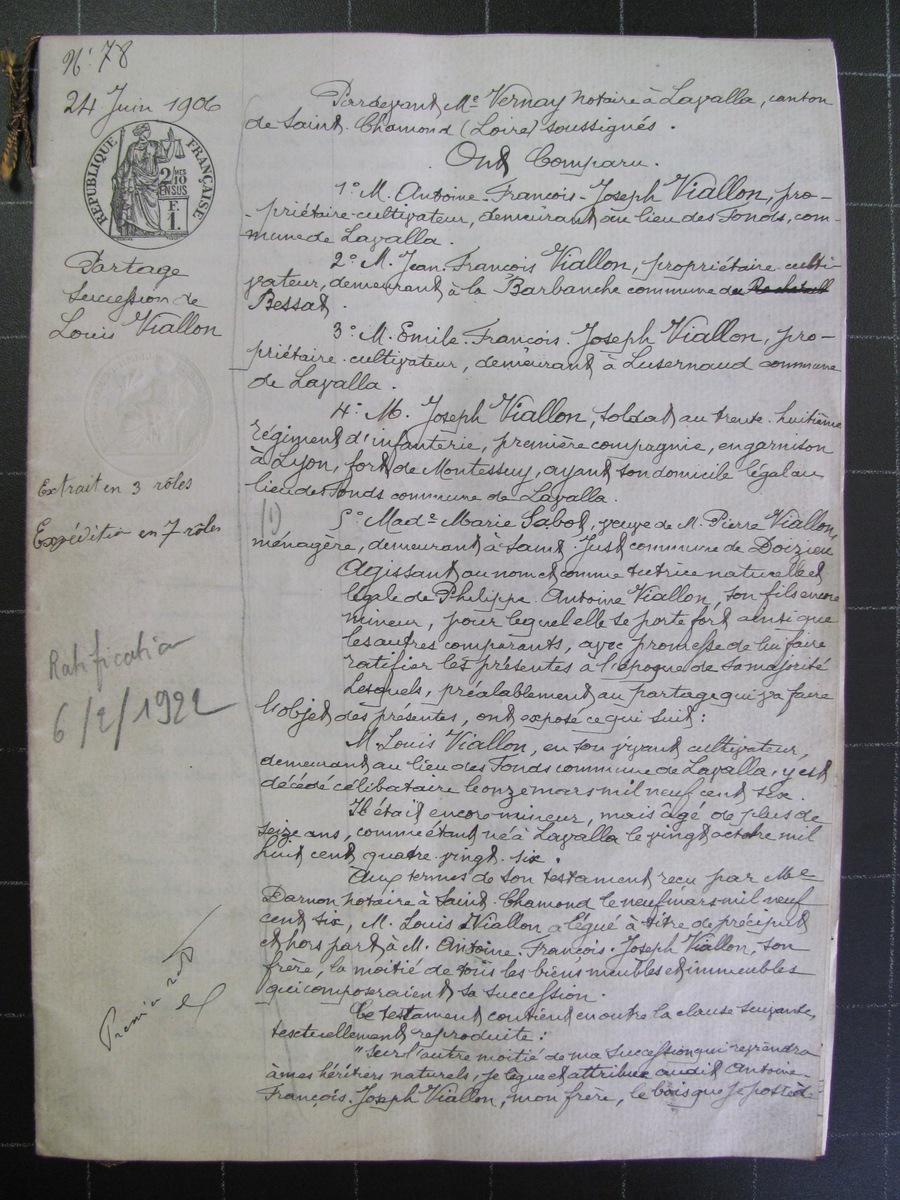 N° 78
24 Juin 1906
RÉPUBLIQUE FRANÇAISE
2/10 EN SUS
F.
1.
Partage
Succession de
Louis Viallon
Extrait en 3 rôles
Expédition en 7 rôles
Ratification
6/2/1922
Premier
Pardevant Me Vernay notaire à Lavalla, canton
de Saint-Chamond (Loire) soussignés.
Ont Comparu.
1° M. Antoine-François-Joseph Viallon, pro-
-priétaire-cultivateur, demeurant au lieu des Fonds, com-
mune de Lavalla.
2° M. Jean-François Viallon, propriétaire-culti-
vateur, demeurant à la Barbanche commune du
Bessat.
3° M. Emile-François-Joseph Viallon, pro-
priétaire-cultivateur, demeurant à Luzernaud commune
de Lavalla.
4° M. Joseph Viallon, soldat au trente-huitième
régiment d'infanterie, première compagnie, en garnison
à Lyon, fort de Montessuy, ayant son domicile légal au
lieu des Fonds commune de Lavalla.
(1) 5° Made Marie Sabot, veuve de M. Pierre Viallon,
ménagère, demeurant à Saint-Just commune de Doizieu
Agissant au nom et comme tutrice naturelle et
légale de Philippe-Antoine Viallon, son fils encore
mineur, pour lequel elle se porte fort ainsi que
les autres comparants, avec promesse de lui faire
ratifier les présentes à l'époque de sa majorité
Lesquels, préalablement au partage qui va faire
l'objet des présentes, ont exposé ce qui suit:
M. Louis Viallon, en son vivant cultivateur,
demeurant au lieu des Fonds commune de Lavalla, y est
décédé célibataire le onze mars mil neuf cent six.
Il était encore mineur, mais âgé de plus de
seize ans, comme étant né à Lavalla le vingt octobre mil
huit cent quatre-vingt-six.
Aux termes de son testament reçu par Me
Darnon notaire à Saint-Chamond le neuf mars mil neuf
cent six, M. Louis Viallon a légué à titre de préciput
et hors part à M. Antoine-François-Joseph Viallon, son
frère, la moitié de tous les biens meubles et immeubles
qui composeraient sa succession.
Ce testament contient en outre la clause suivante,
textuellement reproduite:
"Sur l'autre moitié de ma succession qui reviendra
à mes héritiers naturels, je lègue et attribue audit Antoine-
François-Joseph Viallon, mon frère, le bois que je possède